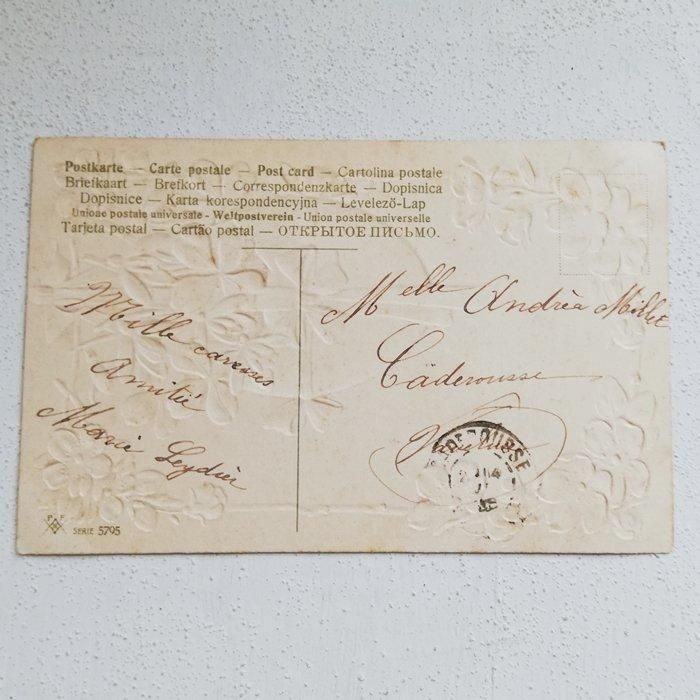 Postkarte — Carte postale — Post card — Cartolina postale
Briefkaart — Brefkort — Correspondenzkarte — Dopisnica
Dopisnice — Karta korespondencyjna — Levelező-Lap
Unione postale universale - Weltpostverein - Union postale universelle
Tarjeta postal — Cartão postal — ОТКРЫТОЕ ПИСЬМО.
Mille caresses
Amitié
Marie Leydier
Melle Andréa Millet
Cäderousse
Vaucluse
CADEROUSSE
P F
SERIE 5795